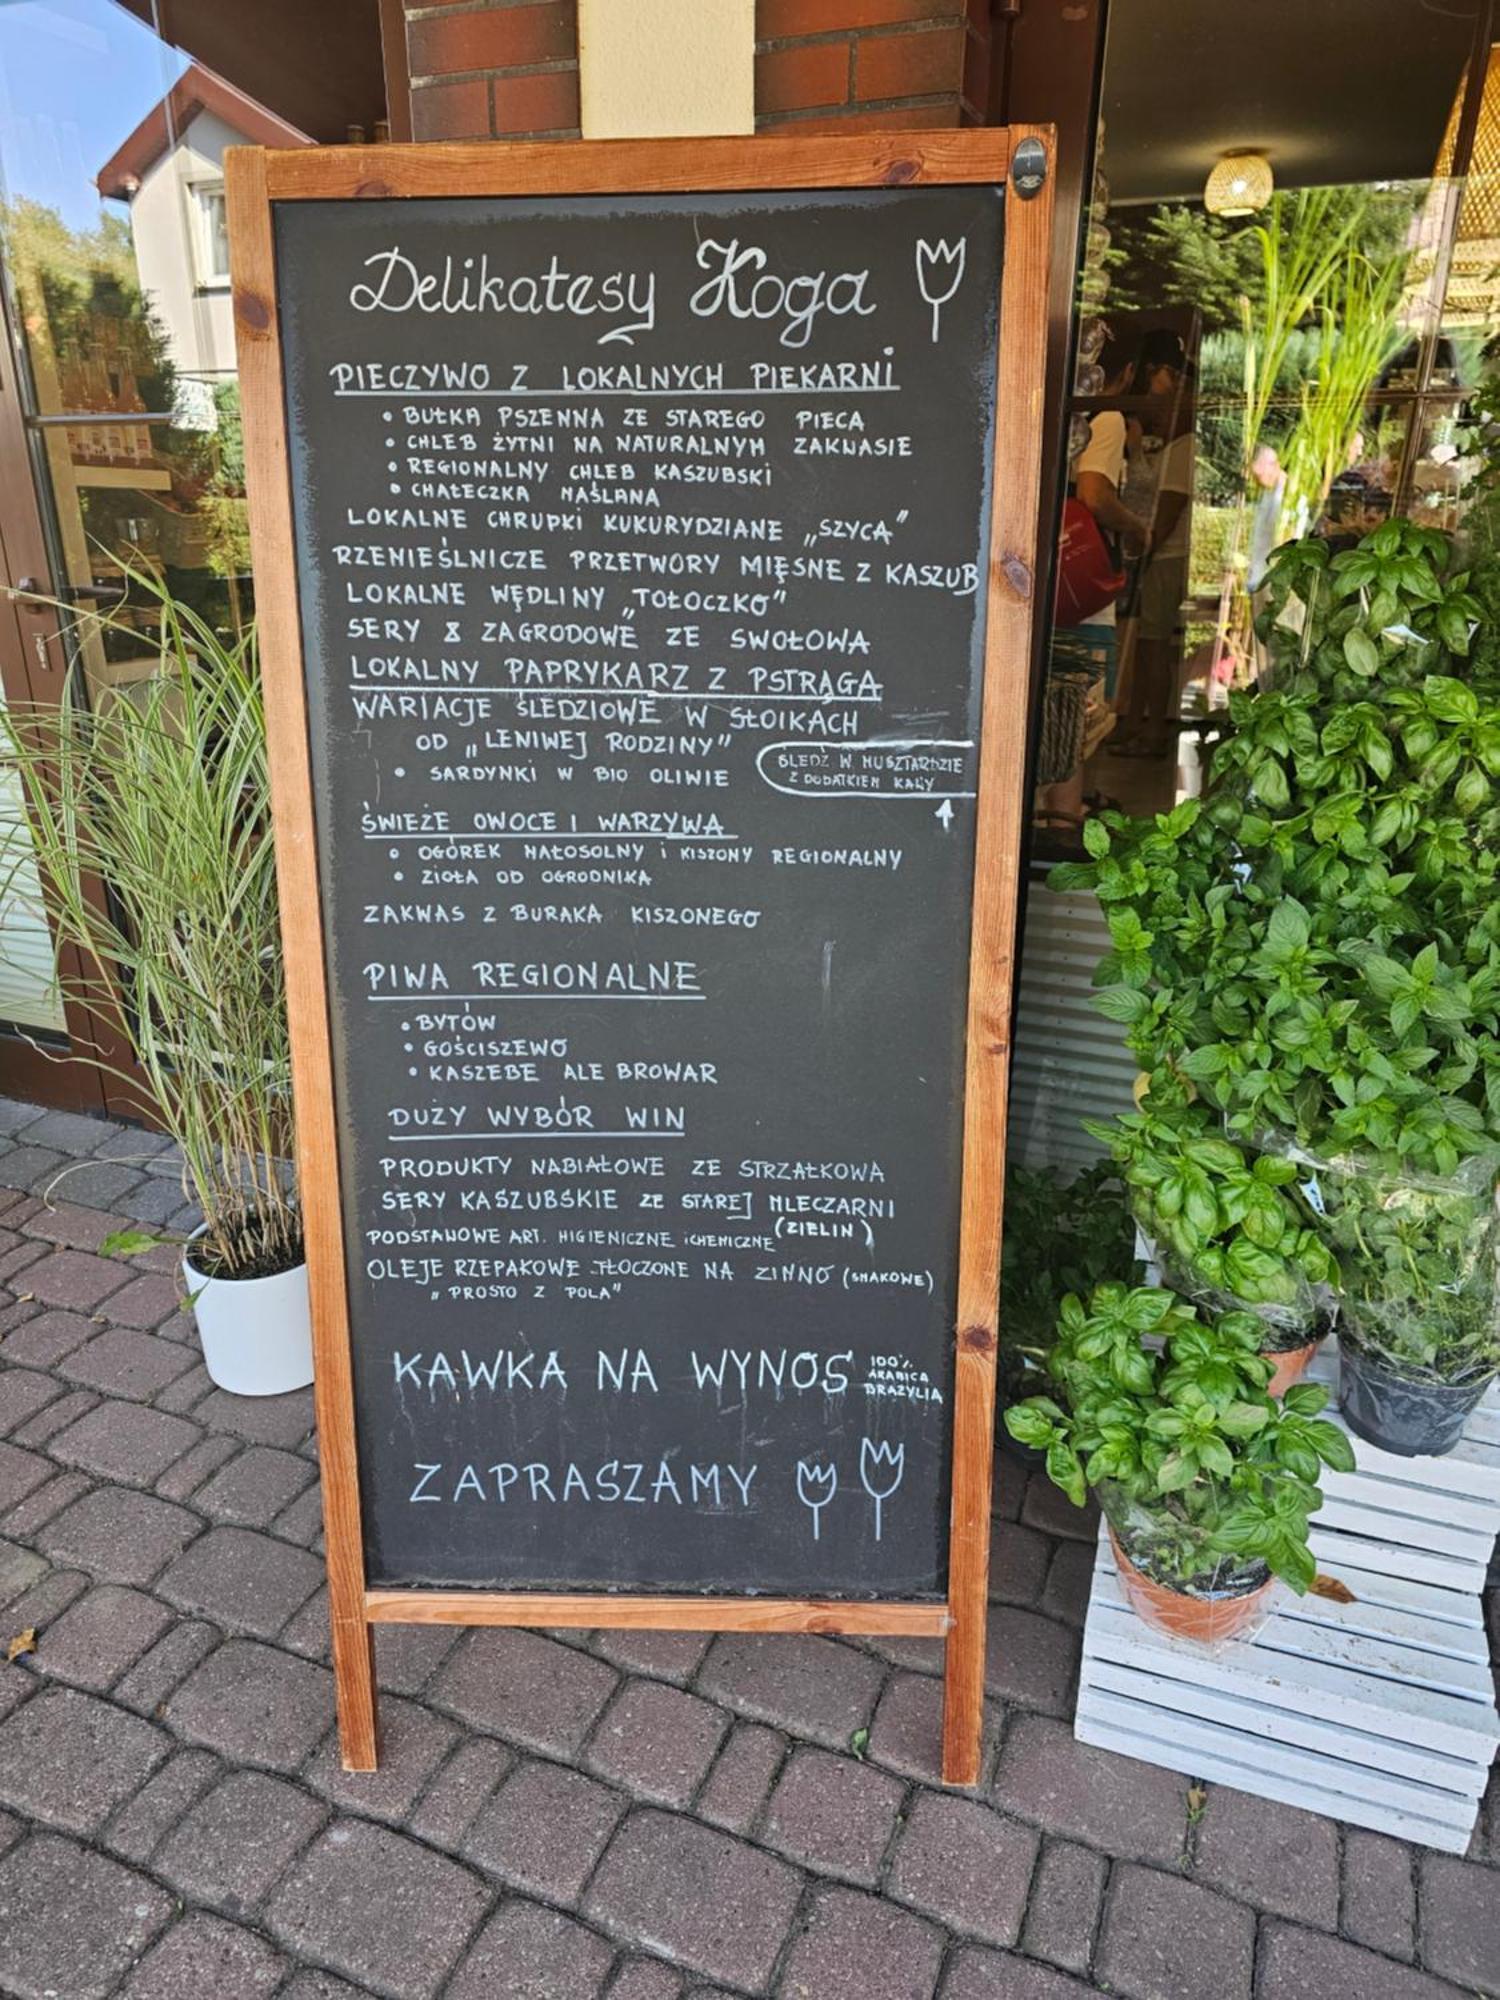 Delikatesy Koga
PIECZYWO Z LOKALNYCH PIEKARNI
• BUŁKA PSZENNA ZE STAREGO PIECA
• CHLEB ŻYTNI NA NATURALNYM ZAKWASIE
• REGIONALNY CHLEB KASZUBSKI
• CHAŁECZKA MAŚLANA
LOKALNE CHRUPKI KUKURYDZIANE „SZYCA”
RZEMIEŚLNICZE PRZETWORY MIĘSNE Z KASZUB
LOKALNE WĘDLINY „TOŁOCZKO”
SERY ZAGRODOWE ZE SWOŁOWA
LOKALNY PAPRYKARZ Z PSTRĄGA
WARIACJE ŚLEDZIOWE W SŁOIKACH
OD „LENIWEJ RODZINY”
• SARDYNKI W BIO OLIWIE
ŚLEDŹ W MUSZTARDZIE
Z DODATKIEM KAWY
ŚWIEŻE OWOCE I WARZYWA
• OGÓREK MAŁOSOLNY i KISZONY REGIONALNY
• ZIOŁA OD OGRODNIKA
ZAKWAS Z BURAKA KISZONEGO
PIWA REGIONALNE
• BYTÓW
• GOŚCISZEWO
• KASZEBE ALE BROWAR
DUŻY WYBÓR WIN
PRODUKTY NABIAŁOWE ZE STRZAŁKOWA
SERY KASZUBSKIE ZE STAREJ MLECZARNI
(ZIELIN)
PODSTAWOWE ART. HIGIENICZNE i CHEMICZNE
OLEJE RZEPAKOWE TŁOCZONE NA ZIMNO (SMAKOWE)
„PROSTO Z POLA”
KAWKA NA WYNOS 100%
ARABICA
BRAZYLIA
ZAPRASZAMY